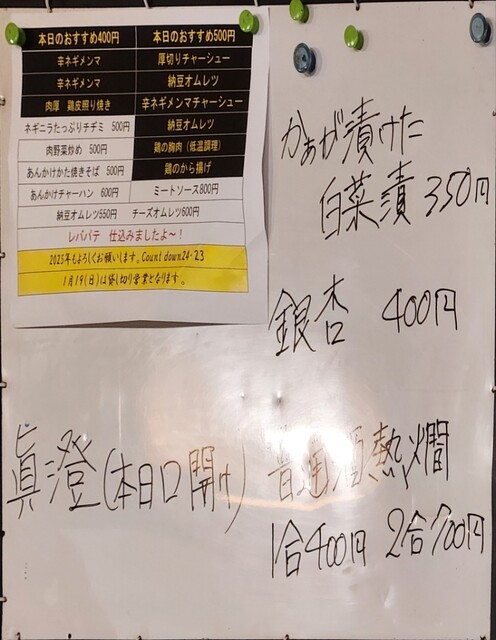 本日のおすすめ400円 本日のおすすめ500円
辛ネギメンマ 厚切りチャーシュー
辛ネギメンマ 納豆オムレツ
肉厚 鶏皮照り焼き 辛ネギメンマチャーシュー
ネギニラたっぷりチヂミ 500円 納豆オムレツ
肉野菜炒め 500円 鶏の胸肉（低温調理）
あんかけかた焼きそば 500円 鶏のから揚げ
あんかけチャーハン 600円 ミートソース800円
納豆オムレツ550円 チーズオムレツ600円
レバパテ 仕込みましたよ～！
2025年もよろしくお願いします。Count down24・23
1月19(日)は貸し切り営業となります。
かあが漬けた
白菜漬 350円
銀杏 400円
眞澄(本日口開け)
普通酒熱燗
1合400円 2合700円